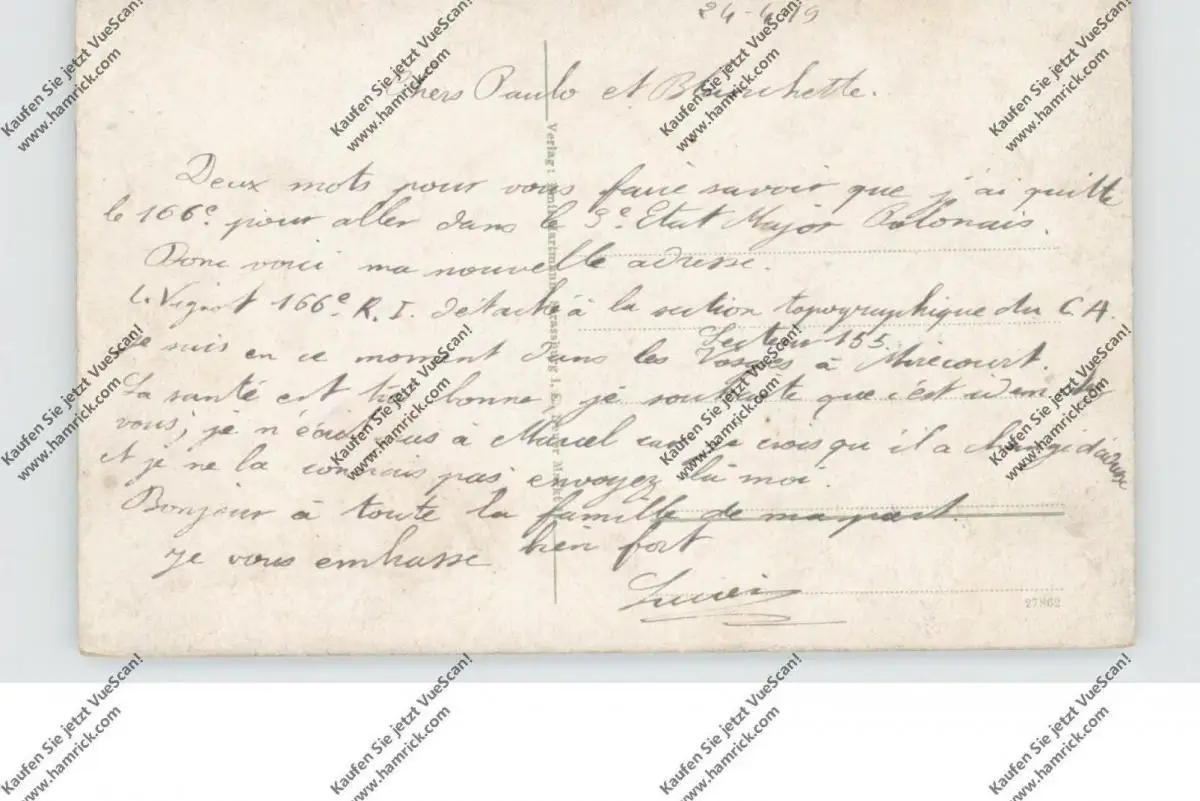 24-4-19
Chers Paulo et Blanchette.
Deux mots pour vous faire savoir que j'ai quitté
le 166e pour aller dans le 3e Etat Major Polonais.
Donc voici ma nouvelle adresse.
166e R.I. détaché à la section topographique du C.A.
Secteur 155.
Je suis en ce moment dans les Vosges à Mirecourt.
La santé est très bonne, je souhaite que c'est idem de
vous; je n'écris pas à Marcel car je crois qu'il a changé d'adresse
et je ne la connais pas, envoyez là moi.
Bonjour à toute la famille de ma part.
Je vous embrasse bien fort
Lucien
Verlag: Hartmann, Strassburg i. E., Alter
27862
Kaufen Sie jetzt VueScan!
www.hamrick.com
Kaufen Sie jetzt VueScan!
www.hamrick.com
Kaufen Sie jetzt VueScan!
www.hamrick.com
Kaufen Sie jetzt VueScan!
www.hamrick.com
Kaufen Sie jetzt VueScan!
www.hamrick.com
Kaufen Sie jetzt VueScan!
www.hamrick.com
Kaufen Sie jetzt VueScan!
www.hamrick.com
Kaufen Sie jetzt VueScan!
www.hamrick.com
Kaufen Sie jetzt VueScan!
www.hamrick.com
Kaufen Sie jetzt VueScan!
www.hamrick.com
Kaufen Sie jetzt VueScan!
www.hamrick.com
Kaufen Sie jetzt VueScan!
www.hamrick.com